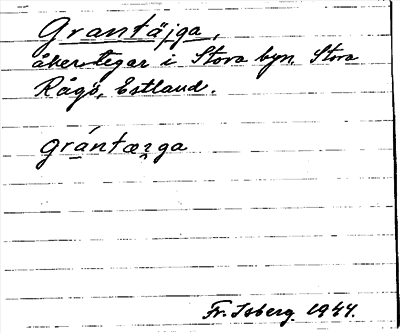 Grantäjga,
åkertegar i Stora byn, Stora
Rågö, Estland.
grántæʒga
Fr. Isberg. 1944.